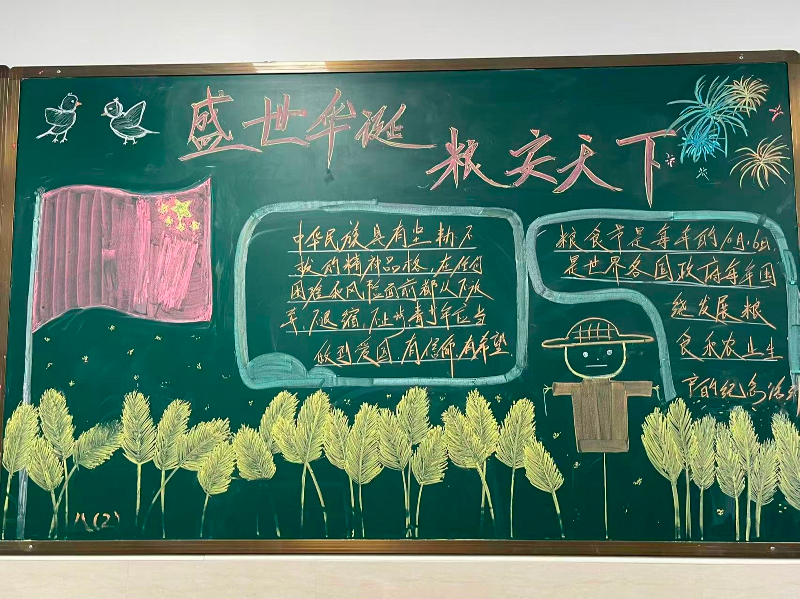 盛世华诞
粮安天下
中华民族具有坚韧不
拔的精神品格,在任何
困难和风险面前都从不放
弃,不退缩,不止步青少年应当
做到爱国,有信仰,有希望
粮食节是每年的10月16日,
是世界各国政府每年围
绕发展粮
食和农业生
产的纪念活动
八(2)